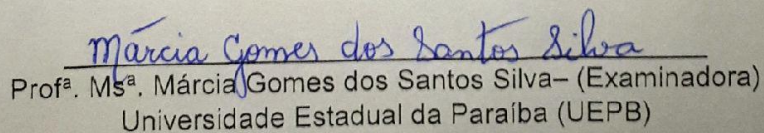 Márcia Gomes dos Santos Silva
Profª. Msª. Márcia Gomes dos Santos Silva– (Examinadora)
Universidade Estadual da Paraíba (UEPB)